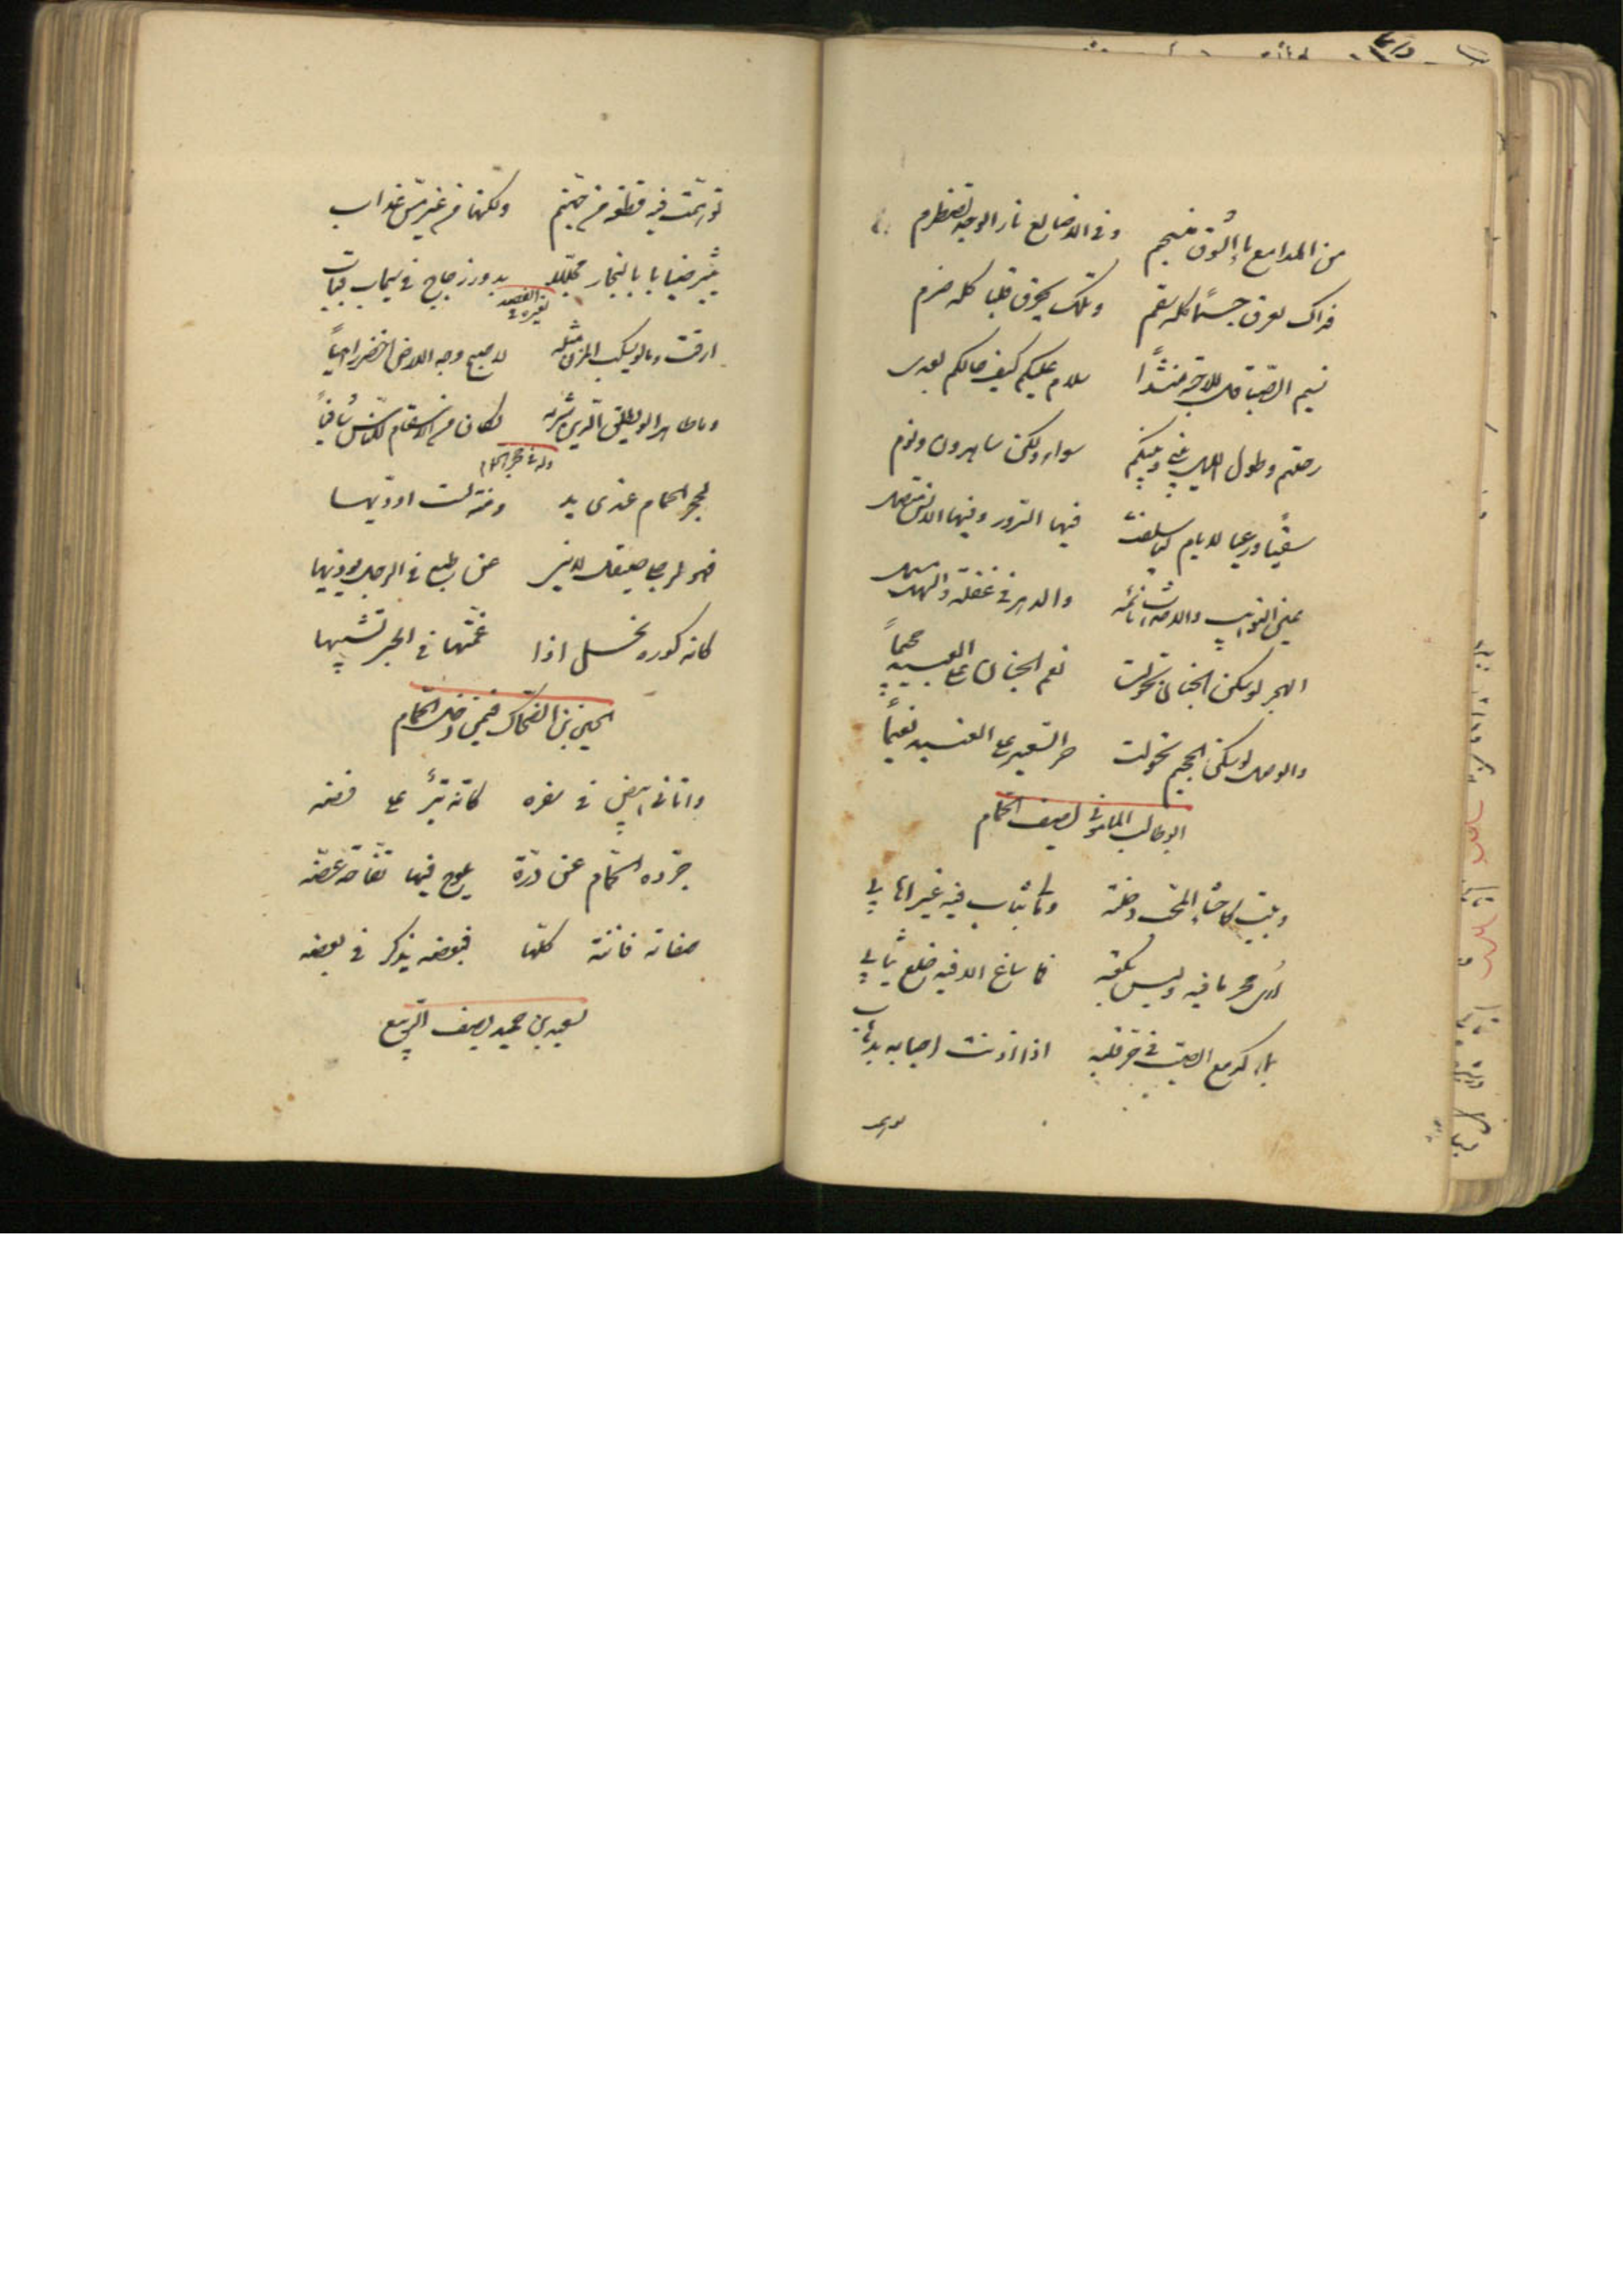 من المدامع ماء الشوق منسجم وفي الاضالع نار الوجد تضطرم
فذاك يغرق جسما كله سقم وتلك يحرق قلبا كله ضرم
نسيم الصبا قل للاحبة منشدا سلام عليكم كيف حالكم بعدى
رحلتم وطول الليل بيني وبينكم سواء ولكن ساهرون ونوم
سقيا ورعيا لايام لنا سلفت فيها السرور وفيها الانس متصل
عين النوايب والاحداث نائمة والدهر في غفلة
الهجر لو سكن الجنان تحولت نعم الجنان على العبيد جحيما
والوصل لو سكن الجحيم تحولت حر السعير على العبيد نعيما
ابو طالب المامونى يصف الحمام
وبيت كاحشاء المحب دخلته وما لى ثياب فيه غير اهابي
ارى محرما فيه وليس بكعبة فما ساغ الا فيه خلع ثيابي
بماء كدمع الصب في حر قلبه اذا اذنت احبابه بذهاب
توهمت
توهمت فيه قطعة من جهنم ولكنها من غير مس عذاب
يثير ضبابا بالبخار مجللا بدور زجاج في سحاب قباب
لغيره في الفصد
ارقت دما لو يسكب المزن مثله لاصبح وجه الارض اخضر زاهيا
دما طاهرا لو يطلق الدين شربه لكان من الاسقام للناس شافيا
وله في حجر الحمام
لحجر الحمام عندى يد ومنة لست اوديها
كانه كورة نحل اذا
الحسين بن الضحاك فيمن دخل الحمام
واتانى ابيض في صفرة كانه تبر على فضه
جرده الحمام عن درة يلوح فيها تفاحة غضه
صفاته فاتنة كلها فبعضه يذكر في بعضه
سعيد بن حميد يصف الربيع